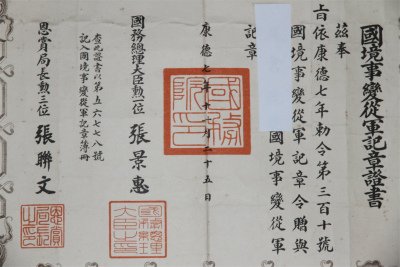 國境事變從軍記章證書
茲奉
上旨依康德七年勅令第三百十號
國境事變從軍記章令贈與
國境事變從軍
記章
康德七年十一月二十五日
國務院印
國務總理大臣勲一位 張景惠
查此證書以第五六七七八號
記入國境事變從軍記章簿冊
恩賞局長勲三位 張聯文
恩賞局長之印